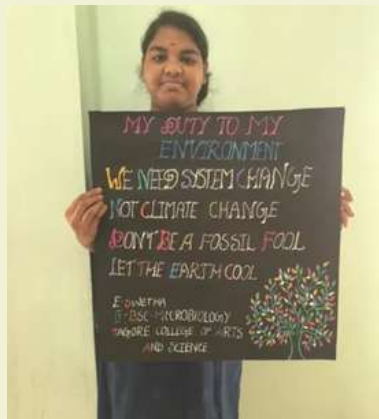 MY DUTY TO MY
ENVIRONMENT
WE NEED SYSTEM CHANGE
NOT CLIMATE CHANGE
DON'T BE A FOSSIL FOOL
LET THE EARTH COOL
BSC-MICROBIOLOGY
TAGORE COLLEGE OF ARTS
AND SCIENCE